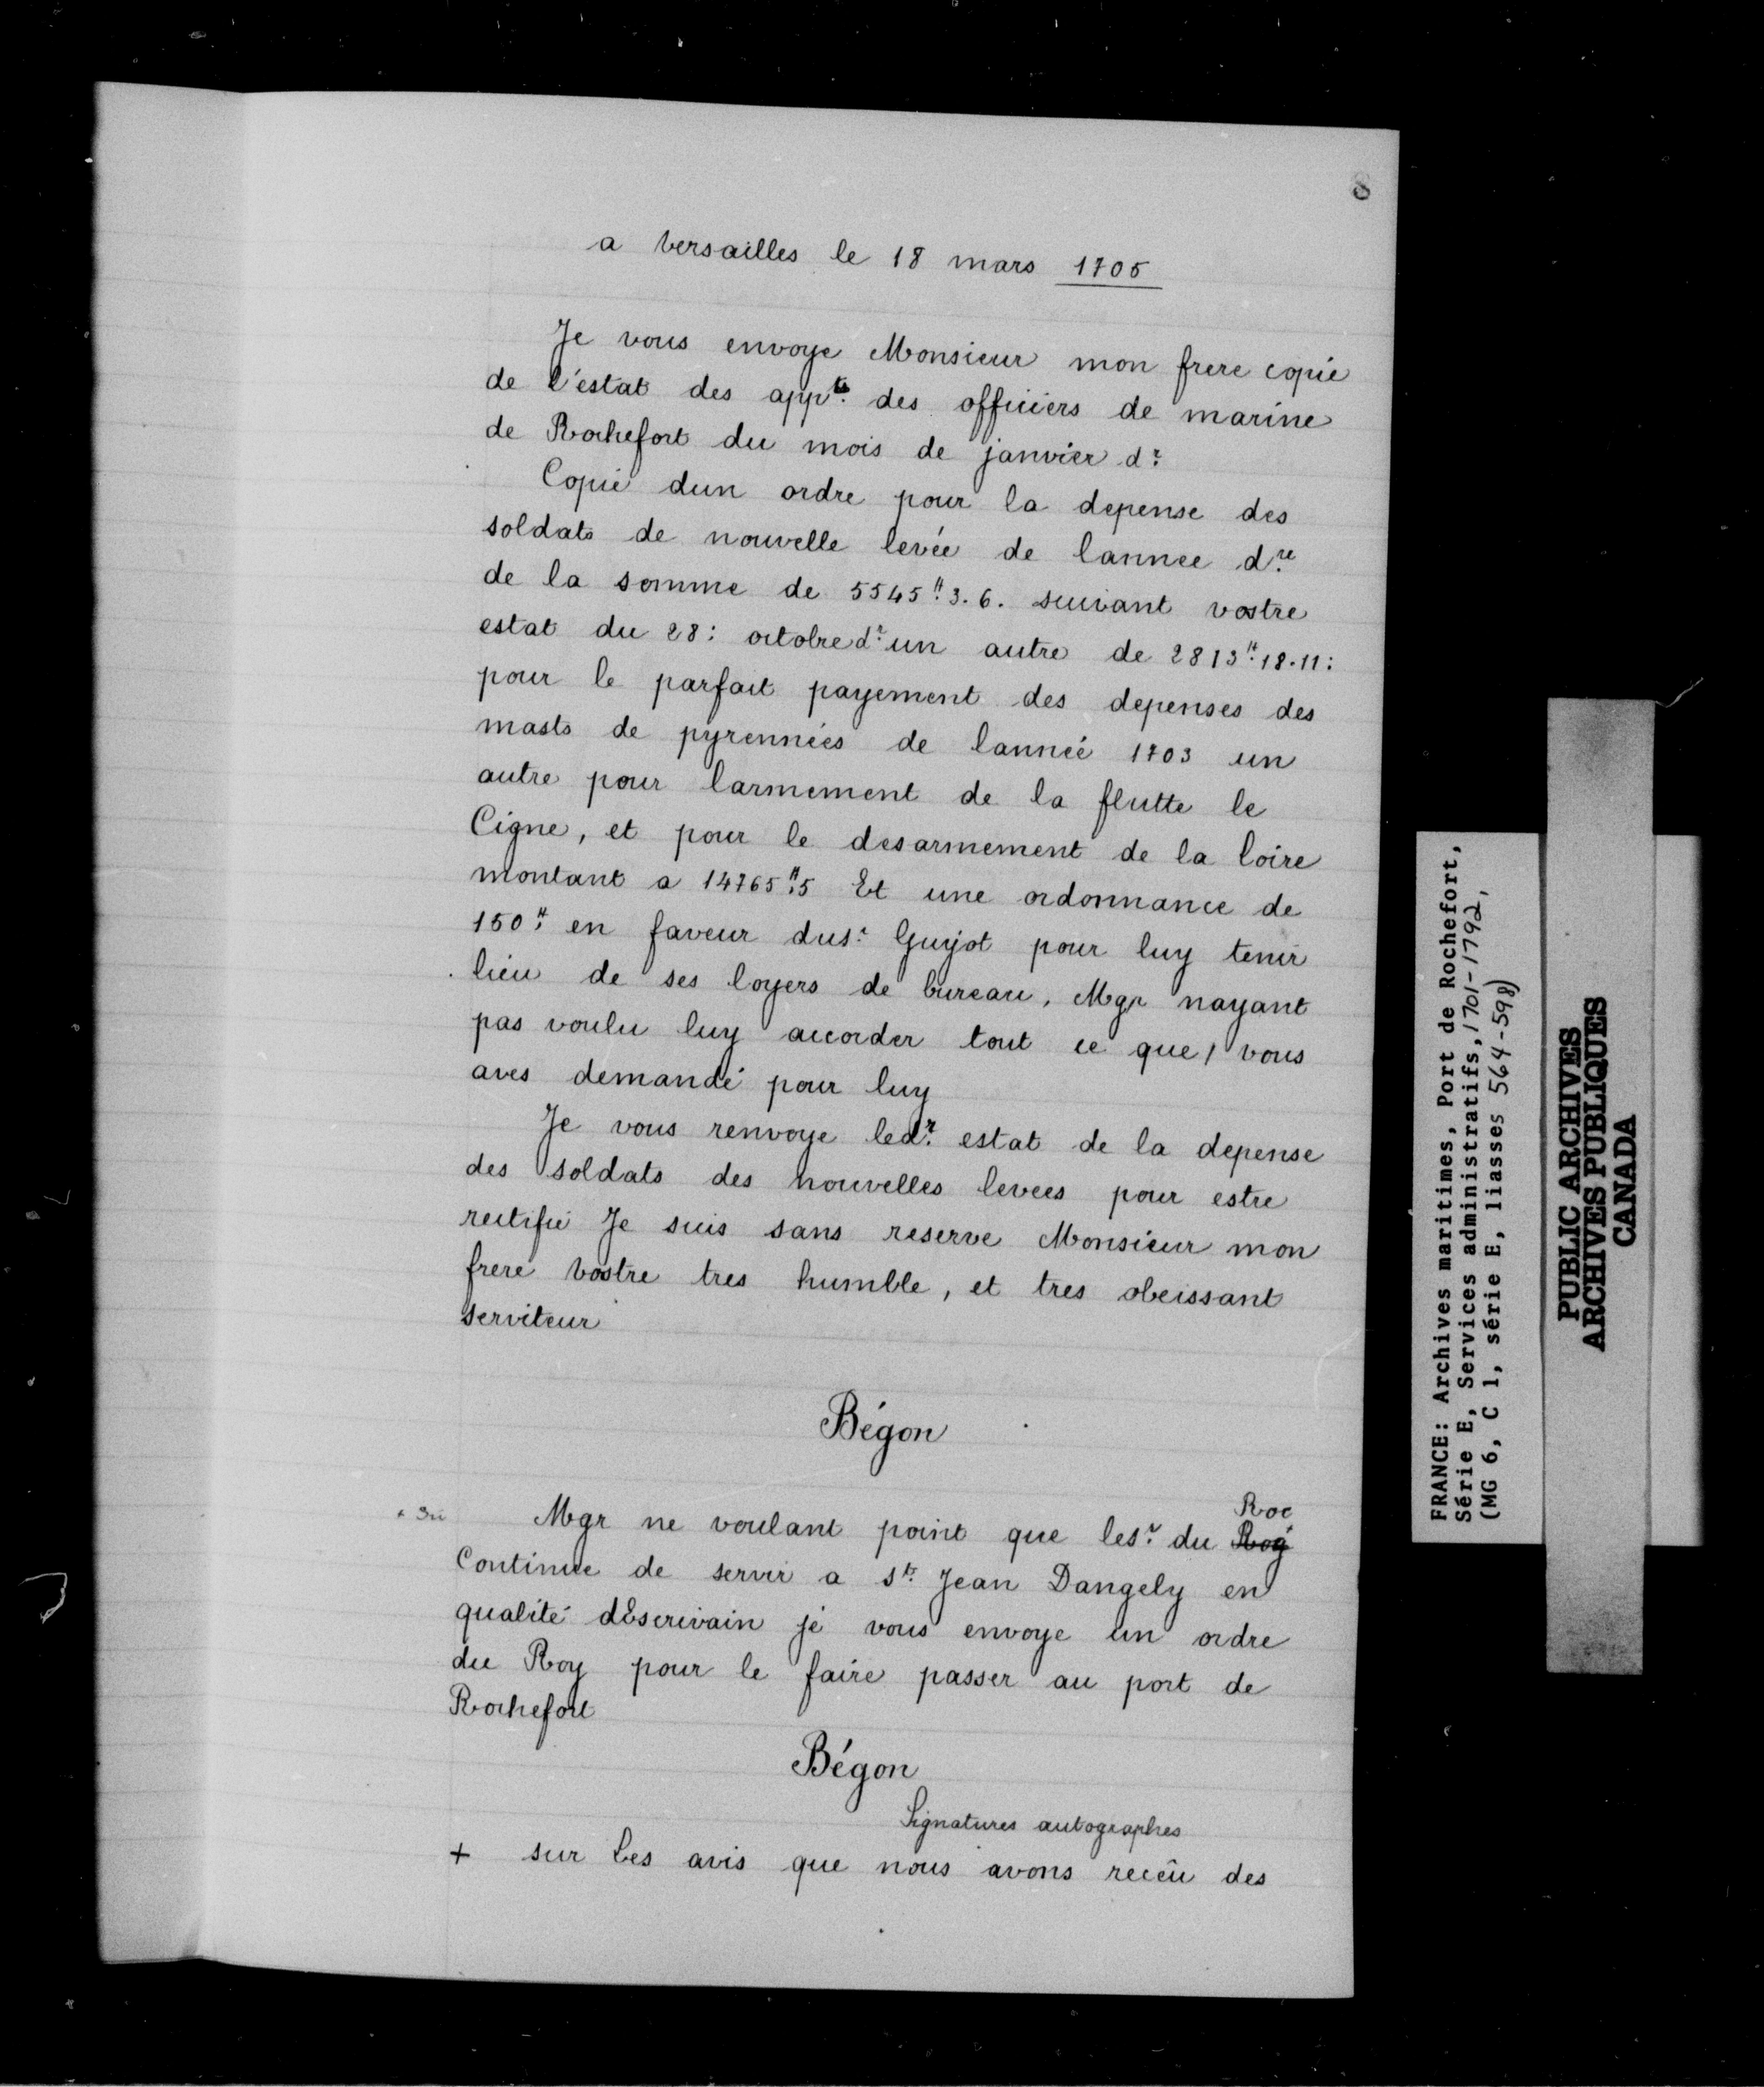 8
a Versailles le 18 mars 1705
Je vous envoye Monsieur mon frere copie
de l'estat des appts. des officiers de marine
de Rochefort du mois de janvier dr.
Copie dun ordre pour la depense des
soldats de nouvelle levée de lannee dre.
de la somme de 5545tt. 3. 6. suivant vostre
estat du 28: octobre dr. un autre de 2813tt. 18. 11:
pour le parfait payement des depenses des
masts de pyrennées de lannéé 1703 un
autre pour larmement de la flutte le
Cigne, et pour le desarmement de la loire
montant a 14765tt. 5 Et une ordonnance de
150tt. en faveur dusr. Guyot pour luy tenir
lieu de ses loyers de bureau, Mgr nayant
pas voulu luy accorder tout ce que, vous
aves demandé pour luy
Je vous renvoye ledr. estat de la depense
des soldats des nouvelles levees pour estre
rectifié Je suis sans reserve Monsieur mon
frere Vostre tres humble, et tres obeissant
serviteur
Bégon
Roc
Mgr ne voulant point que lesr. du Roy
Continue de servir a st. Jean Dangely en
qualité dEscrivain je vous envoye un ordre
du Roy pour le faire passer au port de
Rochefort
Bégon
Signatures autographes
+ sur Les avis que nous avons recêu des
FRANCE: Archives maritimes, Port de Rochefort,
Série E, Services administratifs, 1701-1792,
(MG 6, C 1, série E, liasses 564-598)
PUBLIC ARCHIVES
ARCHIVES PUBLIQUES
CANADA